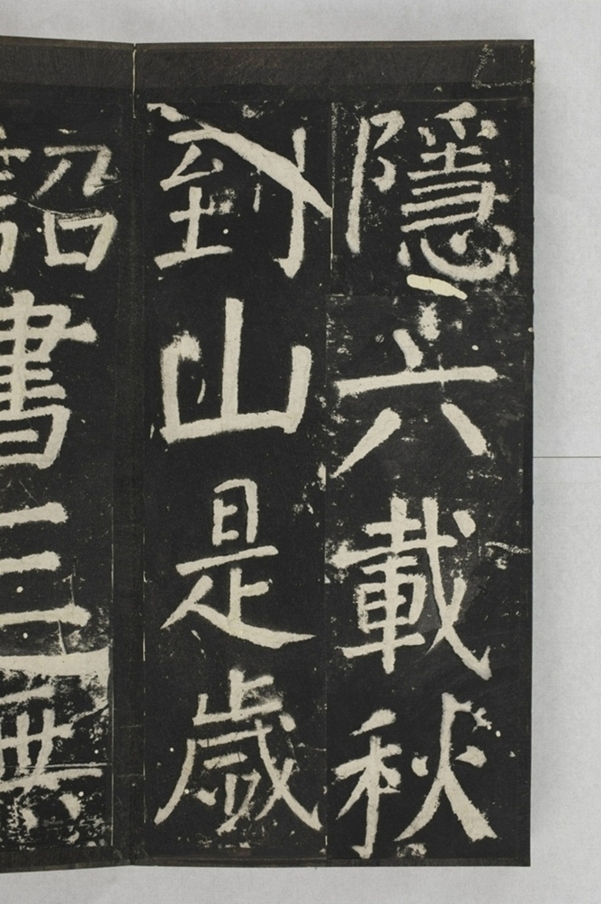 隱六載秋
到山是歲
詔書三無